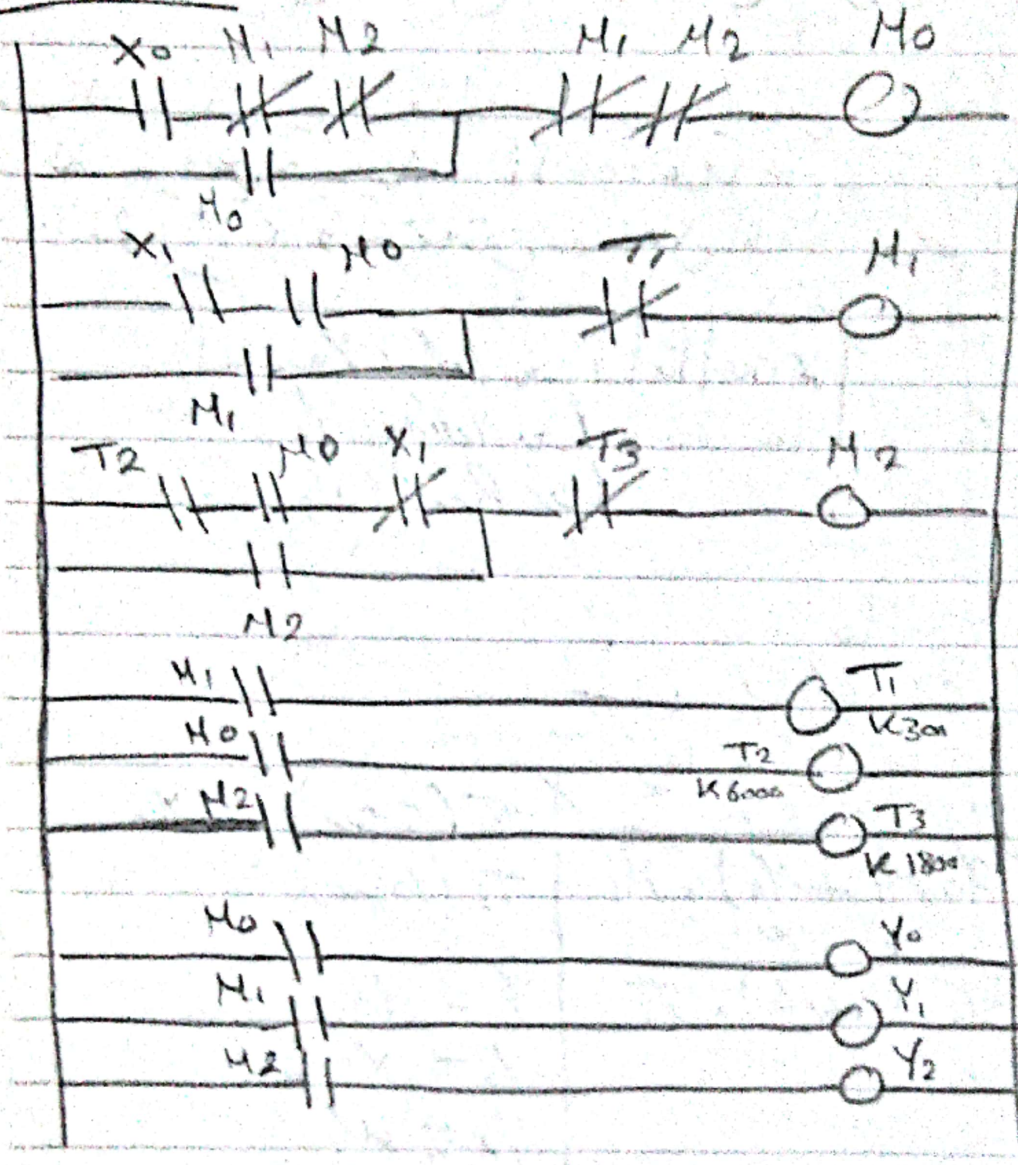 X0 M1 M2 M1 M2 M0
M0
X1 M0 T1 M1
M1
T2 M0 X1 T3 M2
M2
M1 T1
K300
M0 T2
K6000
M2 T3
K1800
M0 Y0
M1 Y1
M2 Y2